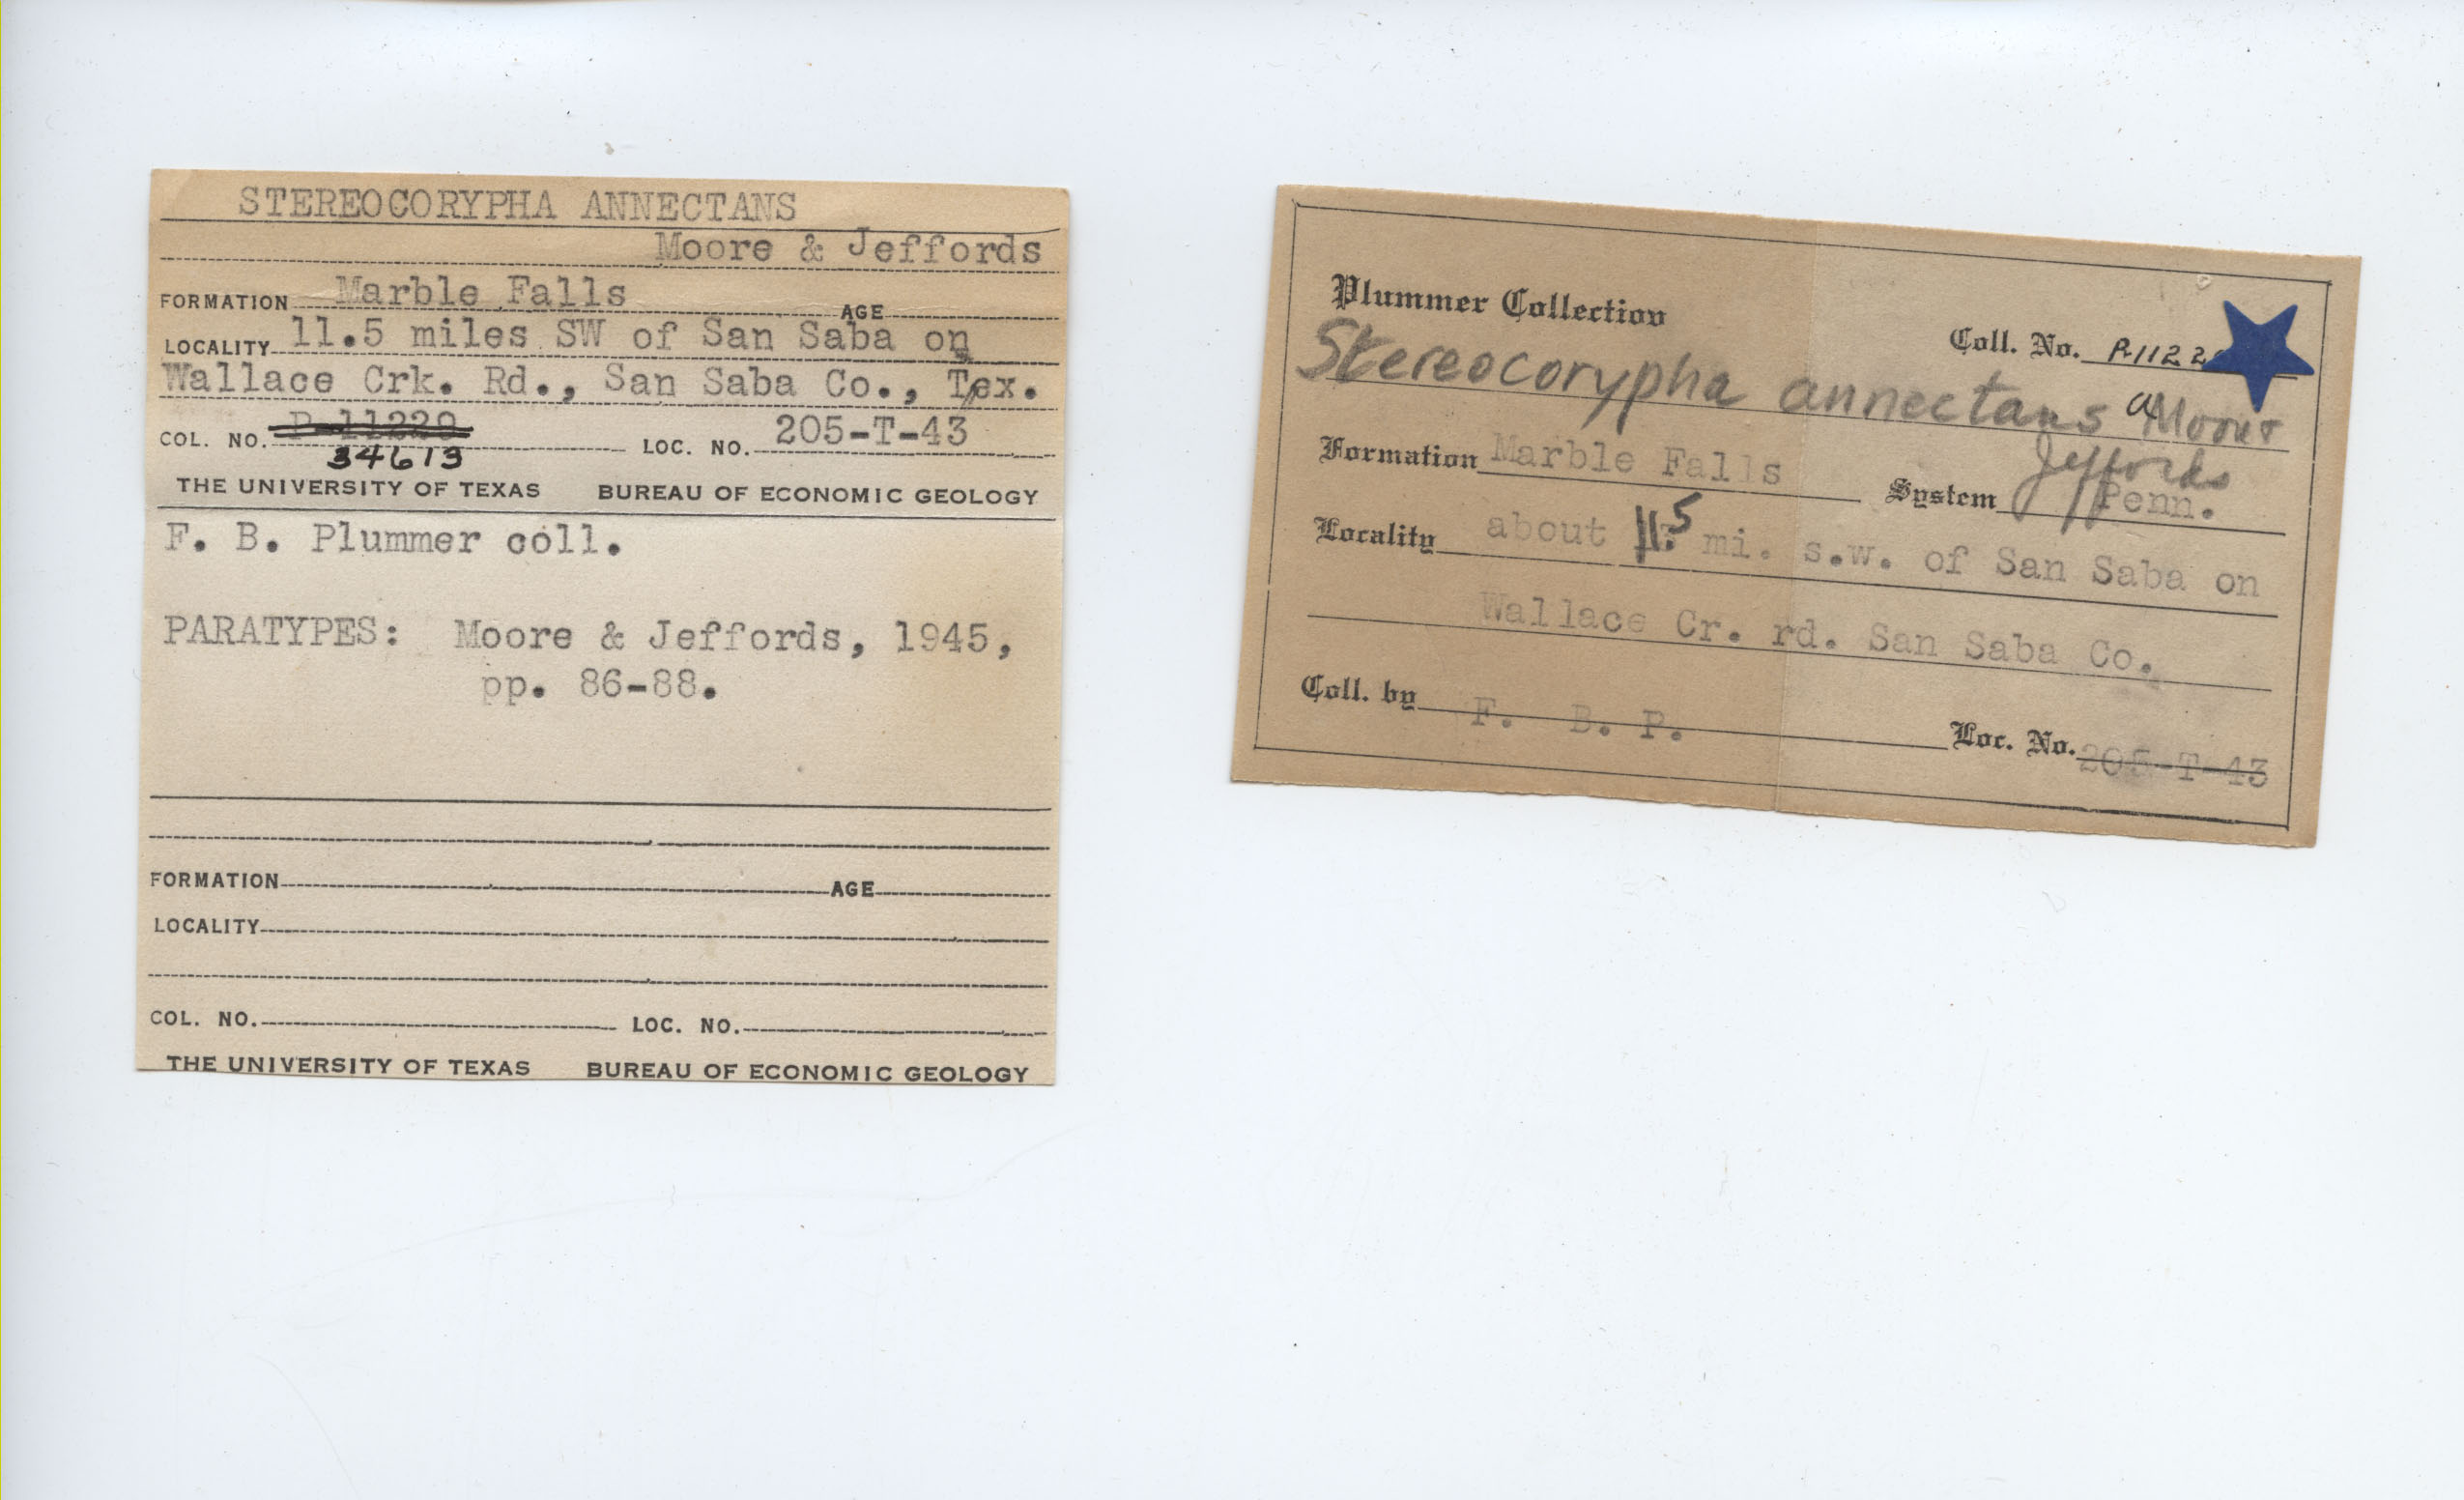 STEREOCORYPHA ANNECTANS
Moore & Jeffords
FORMATION Marble Falls AGE
LOCALITY 11.5 miles SW of San Saba on
Wallace Crk. Rd., San Saba Co., Tex.
COL. NO. P-11220 LOC. NO. 205-T-43
34613
THE UNIVERSITY OF TEXAS BUREAU OF ECONOMIC GEOLOGY
F. B. Plummer coll.
PARATYPES: Moore & Jeffords, 1945,
pp. 86-88.
FORMATION AGE
LOCALITY
COL. NO. LOC. NO.
THE UNIVERSITY OF TEXAS BUREAU OF ECONOMIC GEOLOGY
Plummer Collection
Coll. No. P-1122
Stereocorypha annectans Moore &
Jeffords
Formation Marble Falls System Penn.
Locality about 11.5 mi. s.w. of San Saba on
Wallace Cr. rd. San Saba Co.
Coll. by F. B. P. Loc. No. 205-T-43